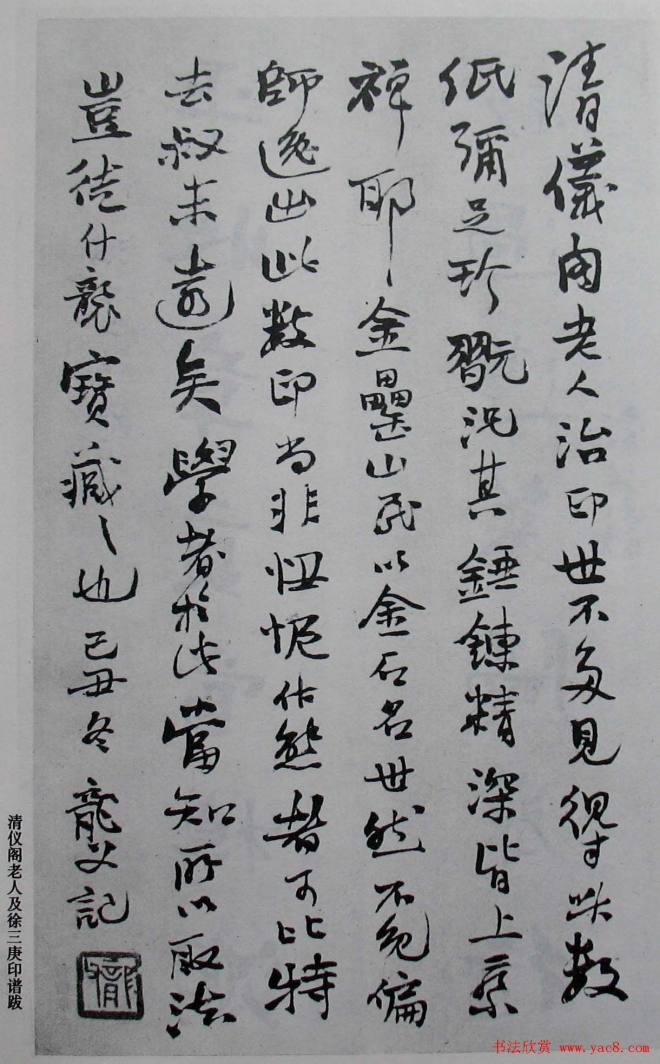 清儀閣老人治印世不多見得此數
紙彌足珍翫況其錘鍊精深皆上乘
禪耶金罍山民以金石名世然不免偏
師逸出此數印尚非忸怩作態者可比特
去叔未遠矣學者於此當知所以取法
豈徒什襲寶藏之也己丑冬父記
清仪阁老人及徐三庚印谱跋
书法欣赏 www.yac8.com